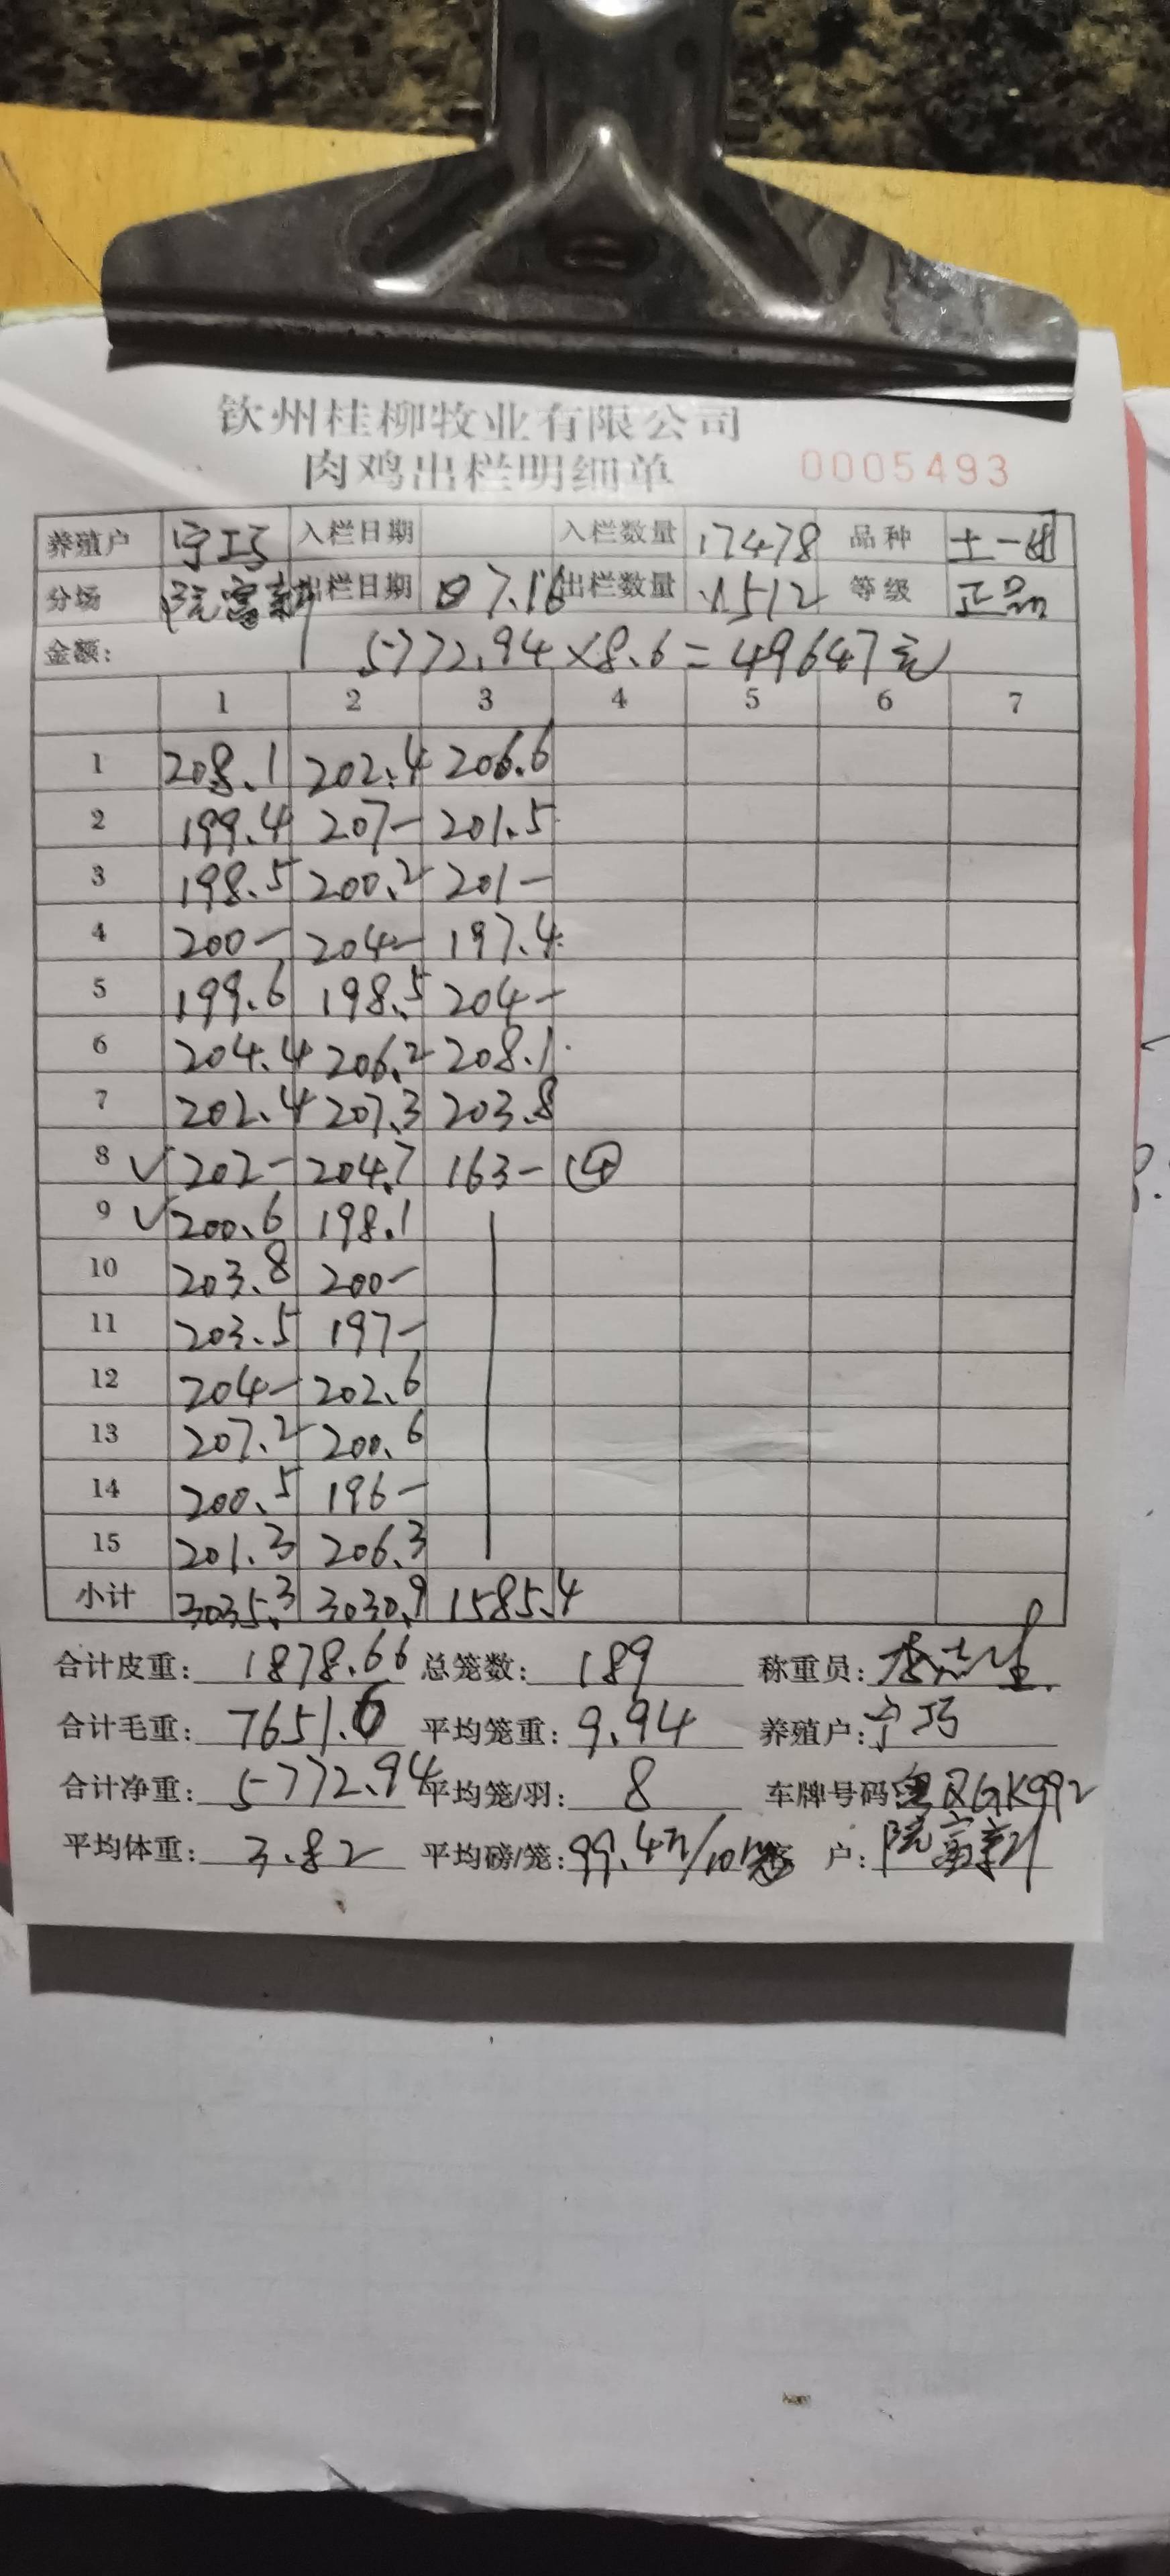 钦州桂柳牧业有限公司
肉鸡出栏明细单 0005493
养殖户 宁巧 入栏日期 入栏数量 17478 品种 土一
分场 阮富新 出栏日期 07.16 出栏数量 1512 等级 正品
金额: 5772.94×8.6=49647元
1 2 3 4 5 6 7
1 208.1 202.4 206.6
2 199.4 207- 201.5
3 198.5 200.2 201-
4 200- 204- 197.4
5 199.6 198.5 204-
6 204.4 206.2 208.1
7 202.4 207.3 203.8
8 ✓ 202- 204.7 163- ④
9 ✓ 200.6 198.1
10 203.8 200-
11 203.5 197-
12 204- 202.6
13 207.2 200.6
14 200.5 196-
15 201.3 206.3
小计 3035.3 3030.9 1585.4
合计皮重: 1878.66 总笼数: 189 称重员:
合计毛重: 7651.6 平均笼重: 9.94 养殖户: 宁巧
合计净重: 5772.94 平均笼/羽: 8 车牌号码 粤QGK992
平均体重: 3.82 平均磅/笼: 99.4斤/10 户: 阮富新